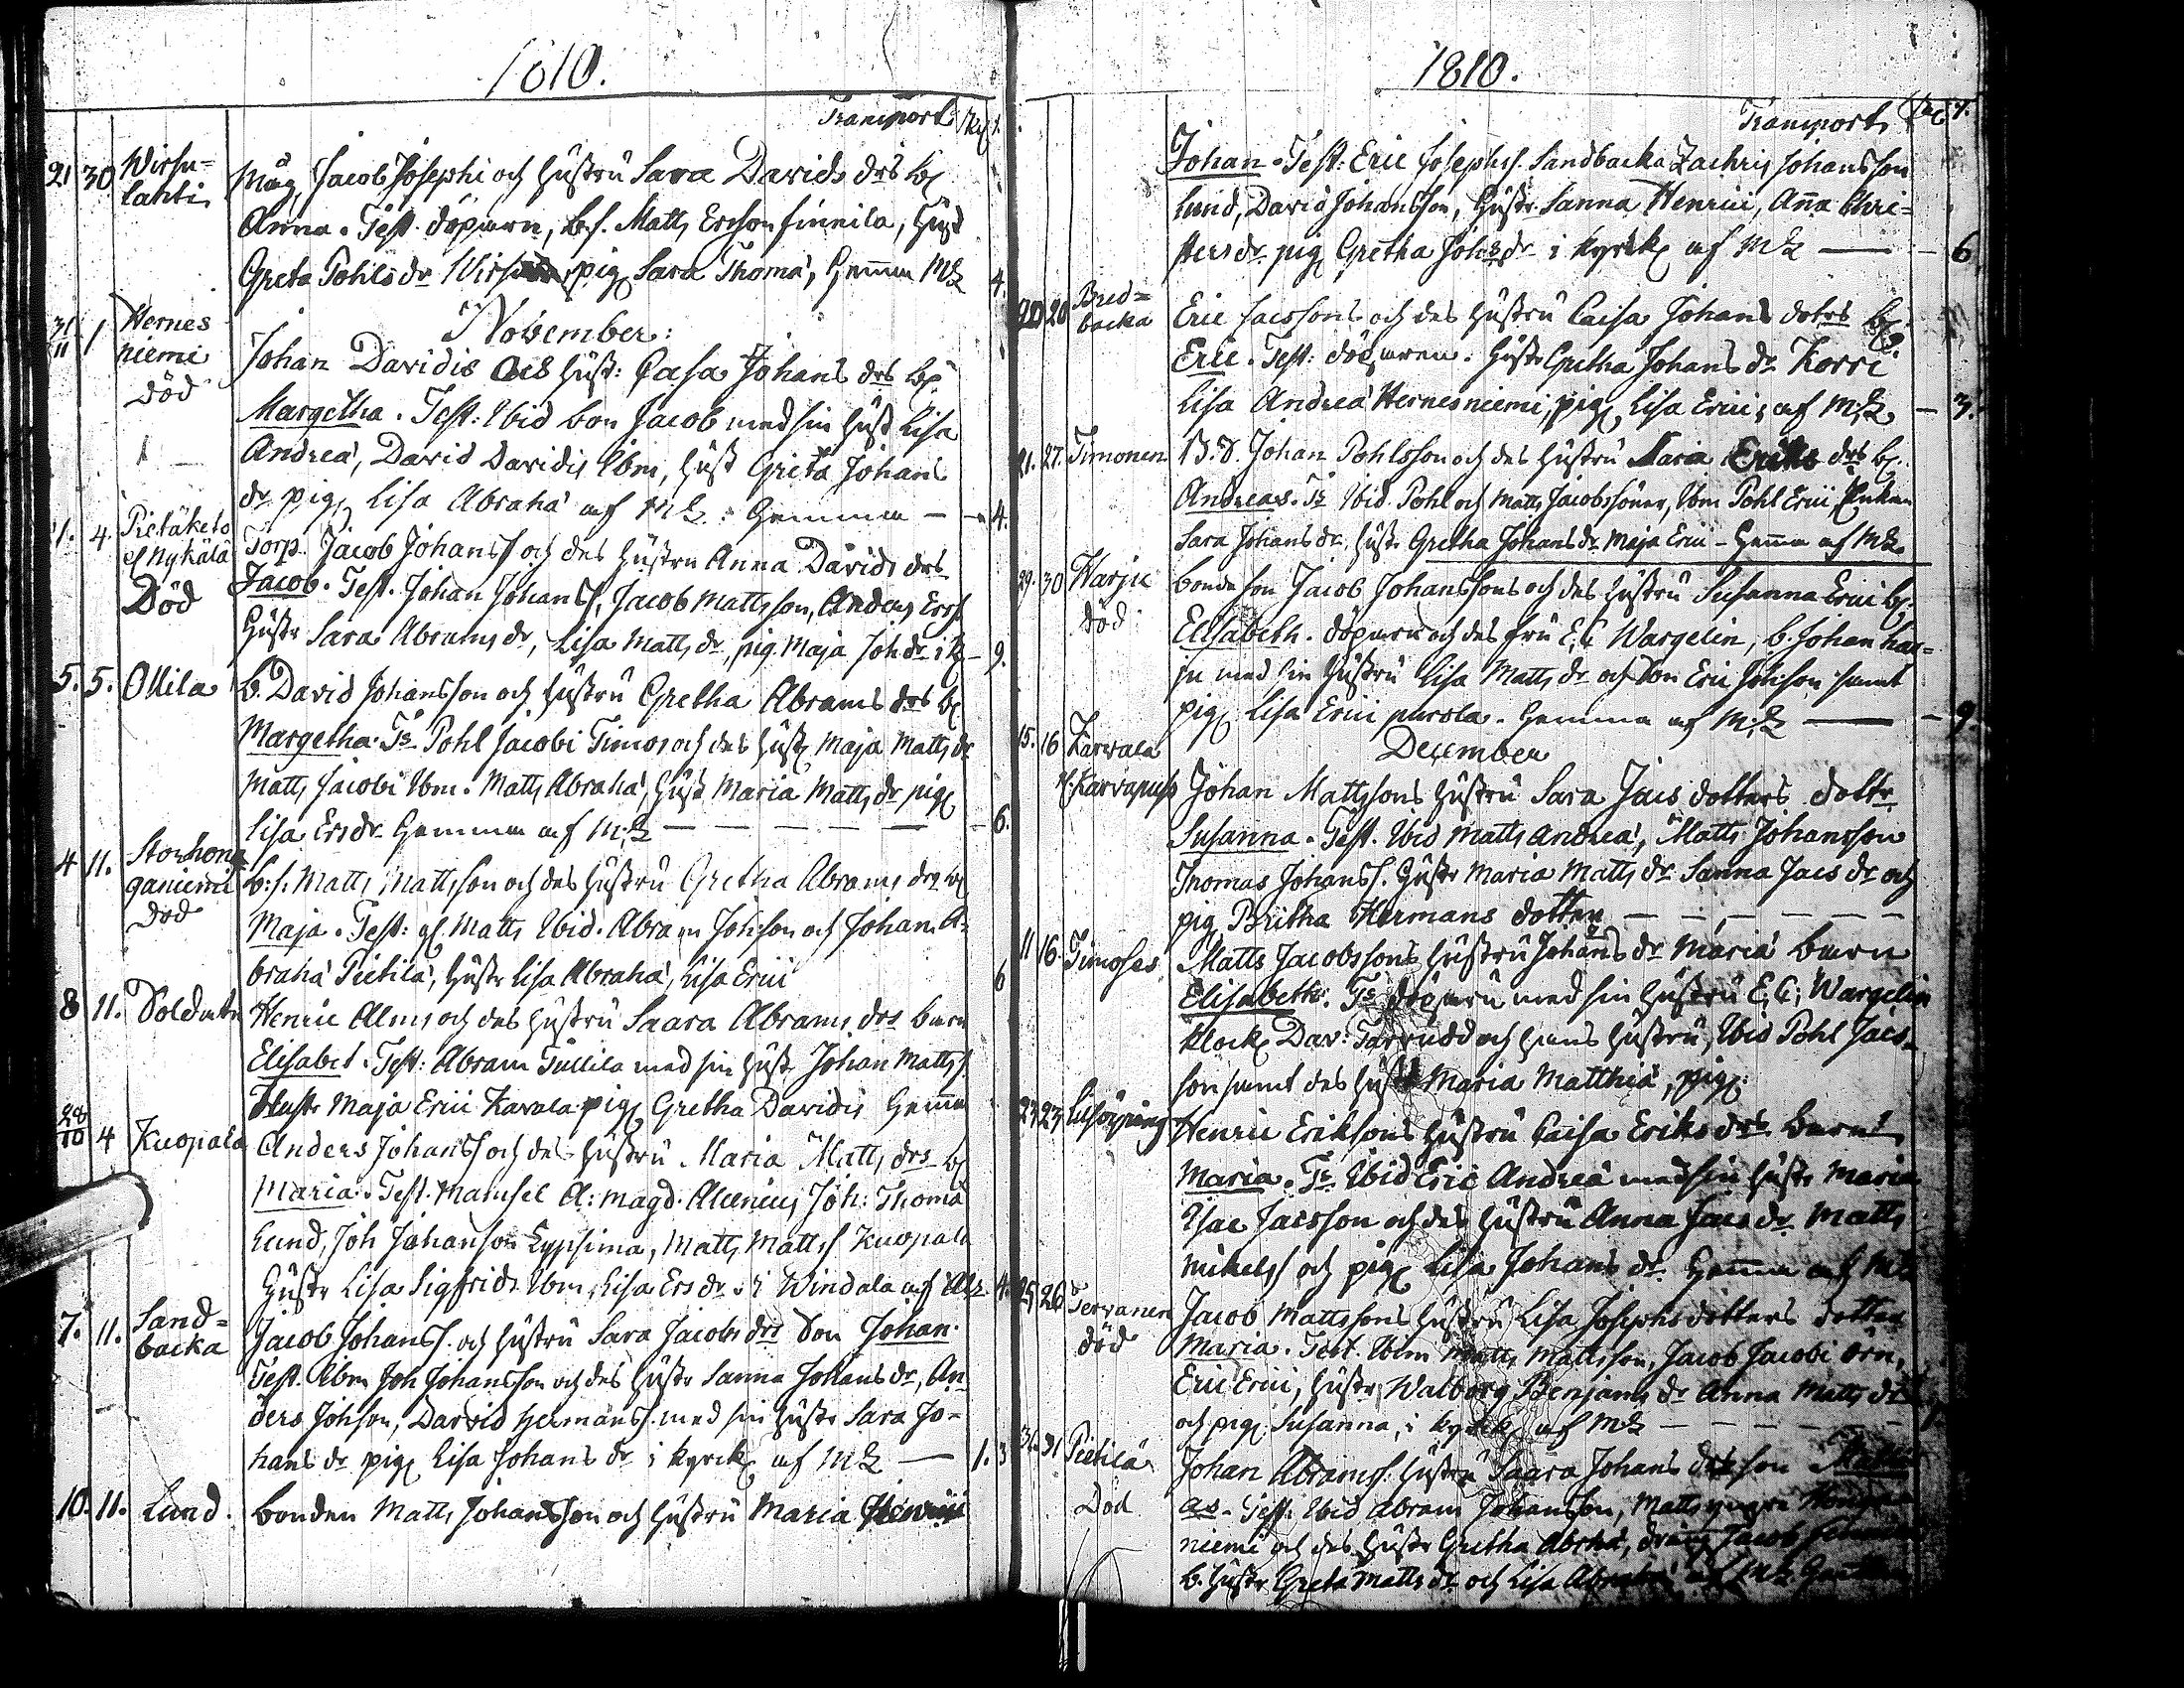 1810.
Transport
21 30 Wirsu=
lahti
Måg, Jacob Josephi och Hustru Sara Davids drs b
Anna. Test. döparen, b.s. Matts Ersson Finnila, Hust
Greta Pohlsdr pig Sara Thomæ, Hemma MZ 4.
November:
31/11 1 Hernes
niemi
död
Johan Davidis och Hust: Casa Johans drs b
Margetha. Test: Ibid bon Jacob med sin Hust Lisa
Andreæ, David Davidis Ibm, Hust Greta Johans
dr pig Lisa Abrahæ af MZ: Hemma — 4.
1. 4. Pietäketo
Nykälä
Död
Torp. Jacob Johanss och des Hustru Anna Davids drs
Jacob. Test. Johan Johanss, Jacob Mattsson, Anders Erss
Hustr Sara Abramsdr, Lisa Matts dr, pig. Maja Joh dr i 9.
5. 5. Ollila
b. David Johansson och Hustru Gretha Abrams drs b
Margetha. Ts Pohl Jacobi Timos och des Hust Maja Matts dr
Matts Jacobi Ibm. Matts Abrahæ, Hust Maria Matts dr pig
Lisa Ersdr Hemma af MZ — 6.
4 11. Storhon
ganiemi
död
b:s. Matts Mattsson och des Hustru Gretha Abrams drs b
Maja. Test: Matts Ibid. Abram Johsson och Johan A=
brahæ Pietilä, Hustr Lisa Abrahæ, Lisa Erici 6
8 11. Soldaten
Henric Alm och des Hustru Saara Abrams drs barn
Elisabet. Test: Abram Tullila med sin Hustr Johan Matts
Hustr Maja Erici Karala pig Gretha Davidis Hemma
28/10 4 Kuopala
Anders Johanss och des Hustru Maria Matts drs b
Maria. Test. Mamsel A: Magd. Alcenius Joh: Thomæ
Lund, Joh Johanson Lypsima, Matts Mattss Kuopala
Hustr Lisa Sigfrids Ibm, Lisa Ersdr i Windala af Alz. 4.
7. 11. Sand=
backa
Jacob Johanss. och Hustru Sara Jacobs drs Son Johan.
Test. Ibm Joh Johansson och des Hustr Sanna Johans dr, An
ders Johson, David Hermanss. med sin Hustr Sara Jo=
hans dr pig Lisa Johans dr i kyrck af MZ — 1. 3
10. 11. Lund.
bonden Matts Johansson och Hustru Maria Henrici
1810.
Transport
Johan. Test: Eric Josephss. Sandbacka Zachris Johansson
Lund, David Johansson, Hustr. Sanna Henrici, Anna Chri=
stersdr pig Gretha Johsdr i kyrk af MZ — 6
20 20 Bred=
backa
Eric Jacssons och des Hustru Caisa Johans dotrs b
Eric. Test: döparen. Hustr Gretha Johans dr Korri
Lisa Andreæ Hernesniemi, pig Lisa Erici af MZ — 3.
21. 27. Timonen
B.d. Johan Pohlsson och des Hustru Maria Eriks drs b
Andreas. Ts Ibid. Pohl och Matts Jacobssöner, Ibm Pohl Erici, Enkan
Sara Johans dr. Hustr Gretha Johans dr Maja Erici - Hemma af MZ
29. 30 Harju
död
bonde son Jacob Johanssons och des Hustru Susanna Erici b:
Elisabeth. döparen och des fru E. C. Wargelin, b. Johan Har=
ju med sin Hustru Lisa Matts dr och Son Eric Johsson samt
pig Lisa Erici purola. Hemma af MZ — 9.
December
15. 16 Karvala
Johan Mattssons Hustru Sara Jacs dotters dottr
Susanna. Test. Ibid Matts Andreæ, Matts Johansson
Thomas Johanss. Hustr Maria Matts dr Sanna Jacs dr och
pig Britha Hermans dotter —
11 16 Timoses
Matts Jacobssons Hustru Johans dr Maria barn
Elisabeth. Ts döparen med sin Hustru E, C, Wargelin
klock Dav: Tarrudd och Hans Hustru, Ibid Pohl Jacs=
son samt des Hust Maria Matthiæ, pig:
23 23
Henric Erikssons Hustru Caisa Eriks drs barn
Maria. Ts. Ibid Eric Andreæ med sin Hustr Maria
Isac Jacsson och des Hustru Anna Jacs dr Matts
Mikelss och pig Lisa Johans dr. Hemma af MZ
25 26 Tervanen
död
Jacob Mattssons Hustru Lisa Josephs dotters dotter
Maria. Test. Ibm Matts Mattsson, Jacob Jacobi Örn,
Eric Erici, Hustr Walborg Benjams dr Anna Matts dr
och pig Susanna, i kyrk af MZ —
31 Pietilä
Död
Johan Abramss. Hustru Saara Johans drs son
as. Test: Ibid Abram Johansson, Matts yngre
niemi och des Hustr Gretha Abrhæ, dräng Jacob
b. Hustr Greta Matts dr och Lisa Abrahæ af MZ